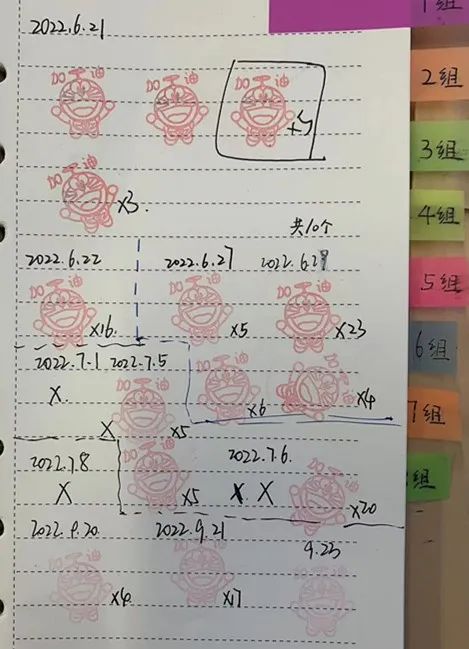 2022.6.21
1组
加油 加油 加油
x5
2组
3组
加油
x3.
4组
共10个
2022.6.22 2022.6.27
5组
加油 加油 加油
x16. x5 x23
6组
2022.7.1 2022.7.5 加油 加油
X. x6 x4
加油
X x5
7组
2022.7.8 加油 2022.7.6.
X x5 X X 加油
x20
组
2022.9.20 2022.9.21 9.23
加油 加油 加油
x4 x17